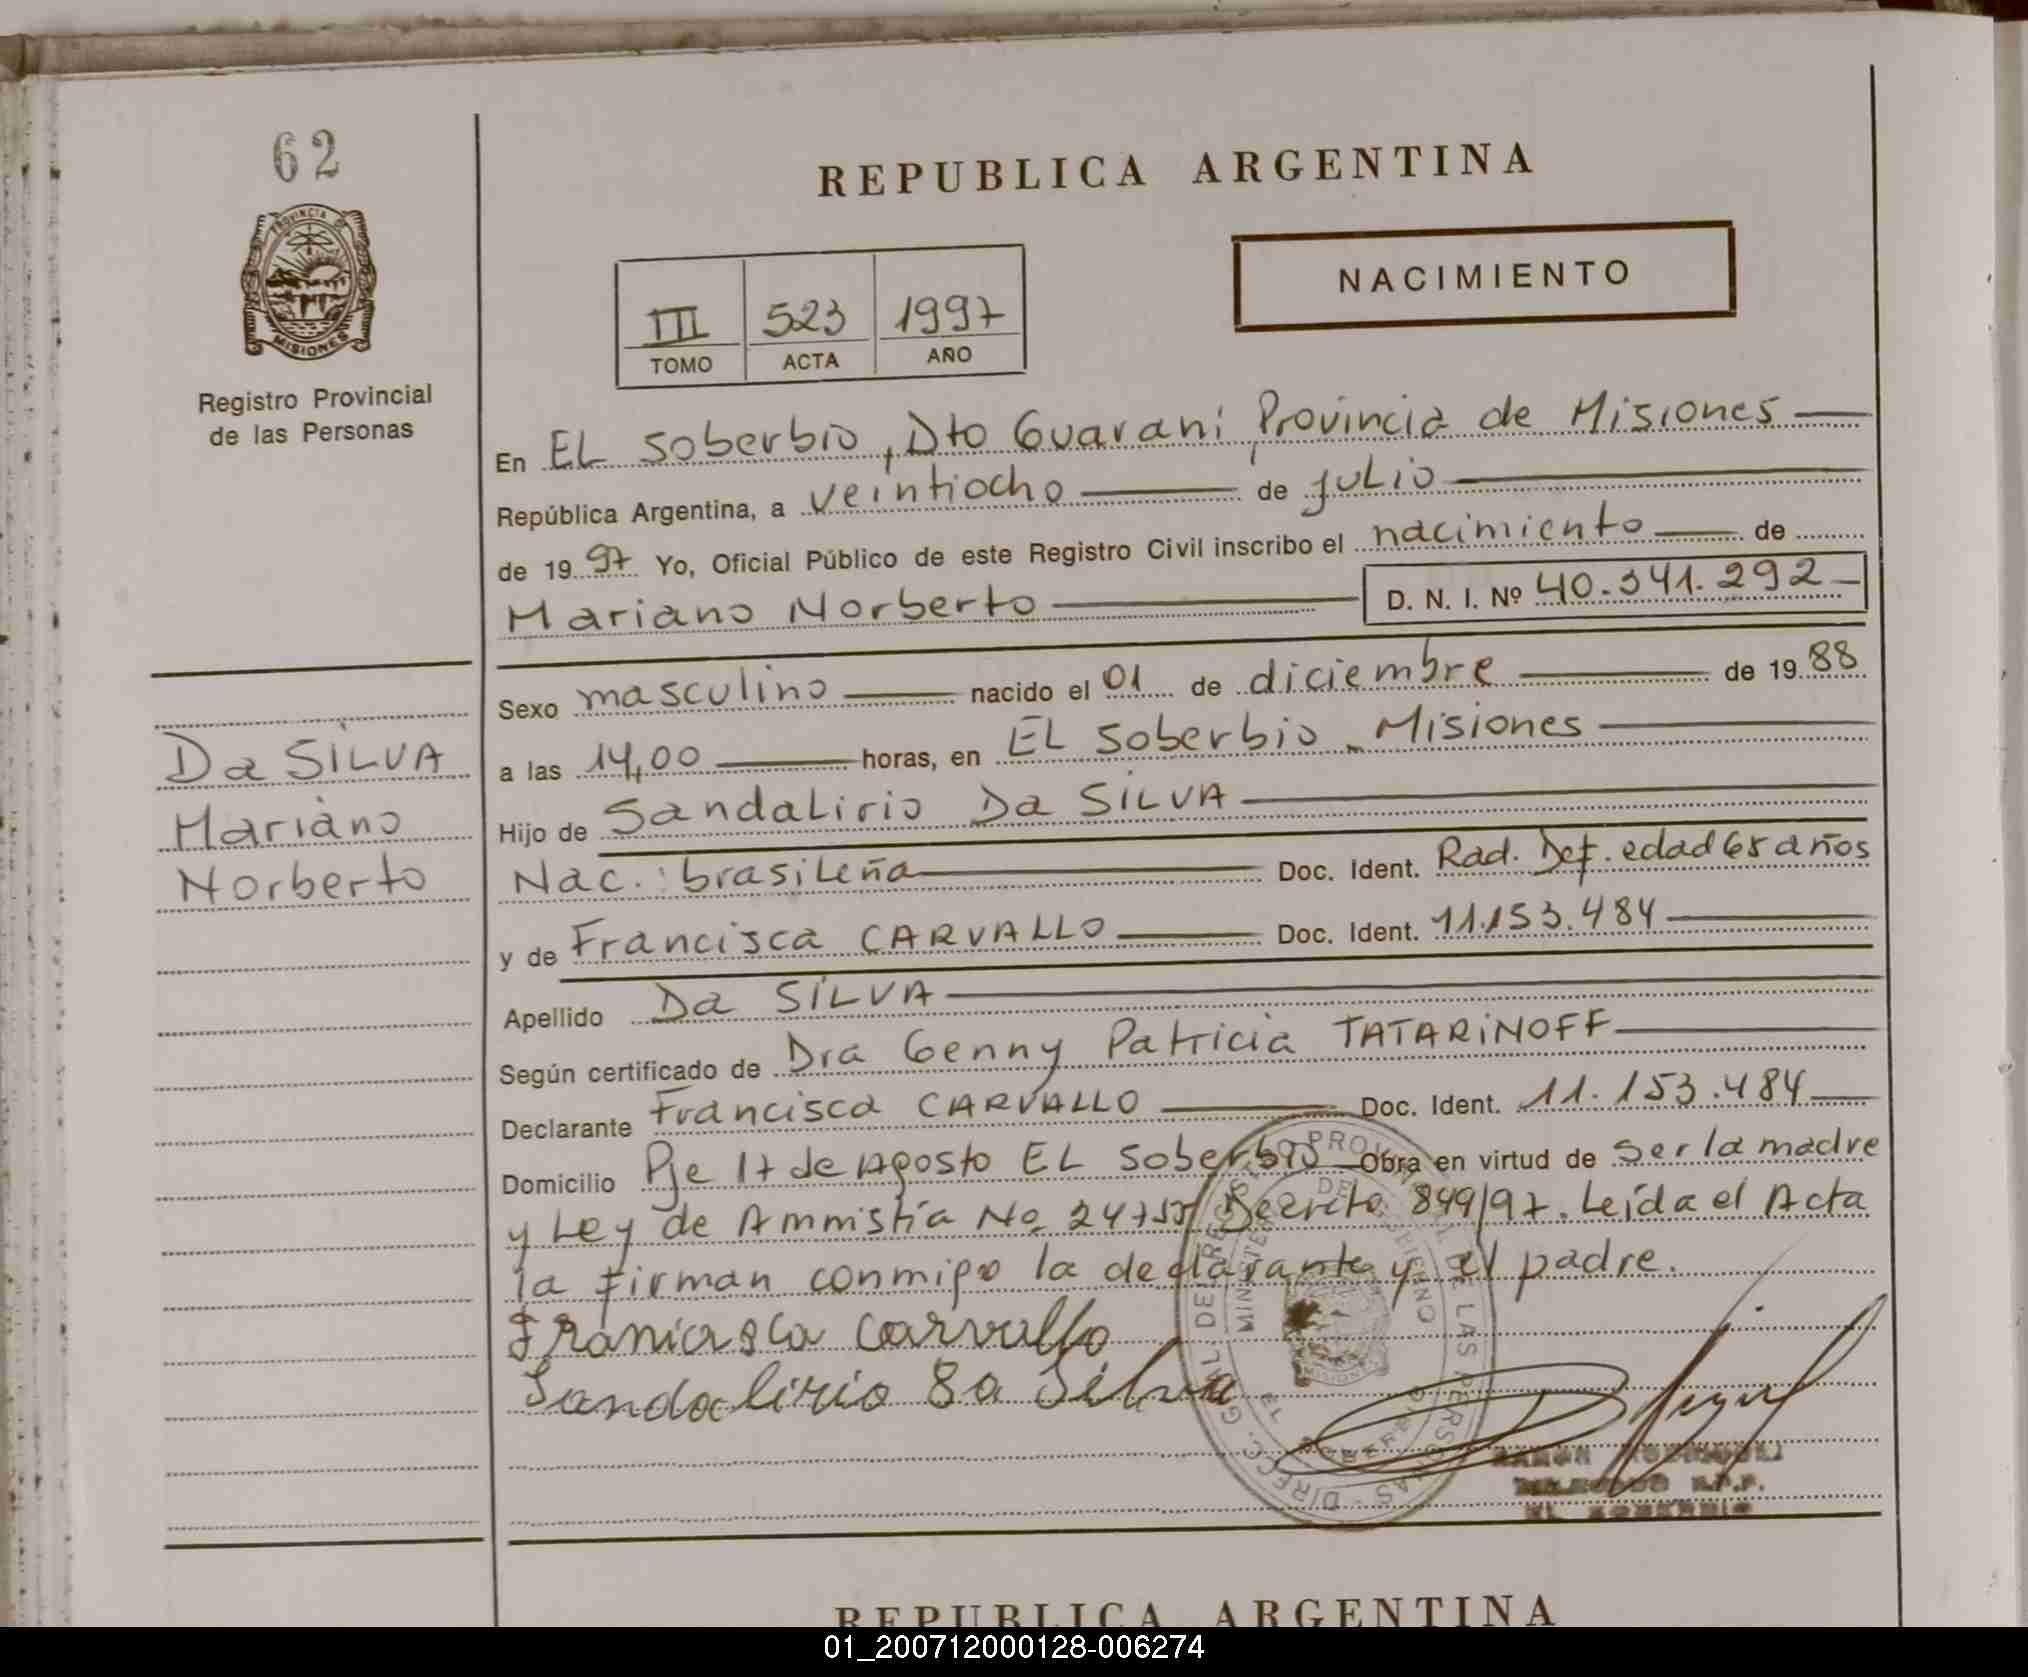 62
PROVINCIA DE
MISIONES
Registro Provincial
de las Personas
REPUBLICA ARGENTINA
NACIMIENTO
III 523 1997
TOMO ACTA AÑO
En EL Soberbio, Dto Guaraní Provincia de Misiones
República Argentina, a veintiocho de julio
de 1997 Yo, Oficial Público de este Registro Civil inscribo el nacimiento de
Mariano Norberto D. N. I. Nº 40.341.292
Sexo masculino nacido el 01 de diciembre de 1988
a las 14,00 horas, en EL Soberbio Misiones
Hijo de Sandalirio Da SILVA
Nac.: brasileña Doc. Ident. Rad. Def. edad 65 años
y de Francisca CARVALLO Doc. Ident. 11.153.484
Apellido Da SILVA
Según certificado de Dra Genny Patricia TATARINOFF
Declarante Francisca CARVALLO Doc. Ident. 11.153.484
Domicilio Pje 17 de Agosto EL Soberbio Obra en virtud de ser la madre
y Ley de Amnistía No 24755 Decreto 849/97. Leída el Acta
la firman conmigo la declarante y el padre.
Franciasca Carvallo
Sandalirio Da Silva
Da SILVA
Mariano
Norberto
DIRECC. GRAL. DEL REGISTRO PROVINCIAL DE LAS PERSONAS
MINISTERIO DE GOBIERNO
EL SOBERBIO
MISIONES
EL SOBERBIO
REPUBLICA ARGENTINA
01_200712000128-006274